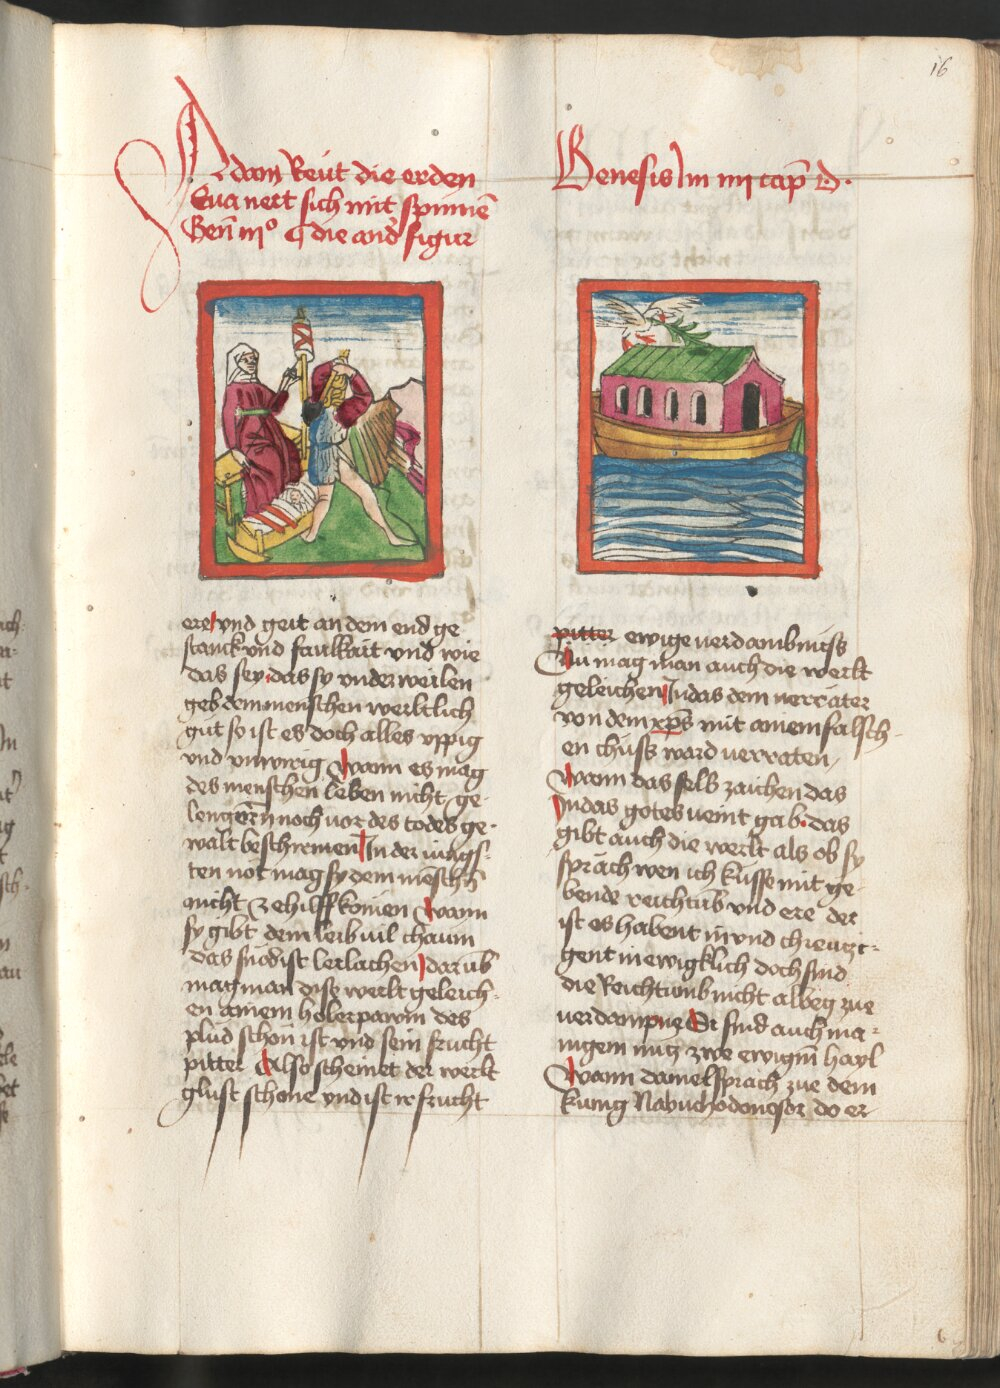 16
Adam Reut die erden
Eua nert sich mit spinnē
Geñ iijº die and̓ figur
ere vnd geit an dem end ge
stanck vnd faulkait vnd wie
das sey das sy vnderweilen
geb dem menschen werltlich
gut so ist es doch alles vppig
vnd vnwirig wann es mag
des menschen leben nicht ge-
lengern noch vor des todes ge-
walt beschirmen In der iungs-
ten not mag sy dem mēschn̄
nicht ze hilff komen wann
sy gibt dem leib vil chaum
das snodist leilachen darūb
mag man dise werlt geleich-
en ainem holerpawm des
plud schön ist vnd sein frucht
pitter Also scheinet der werlt
glust schone vnd ist ir frucht
Genesis in iiij cap̄ D.
pitter ewige uerdambnuss
Nu mag man auch die werlt
geleichen Judas dem uerräter
von dem xp̄s mit ainem falsch-
en chuss ward uerraten
wann das selb zaichen das
Judas gotes ueint gab das
gibt auch die werlt als ob sy
sprach wen ich küsse mit ge-
bende reichtūb vnd ere der
ist es habent in vnd chreutzi-
gent in ewigklich doch sind
die Reichtumb nicht albeg zue
uerdampne Si sind auch ma-
nigem nutz zwe ewigm̄ hayl
wann daniel sprach zue dem
kunig Nabuchodonosor do er
6